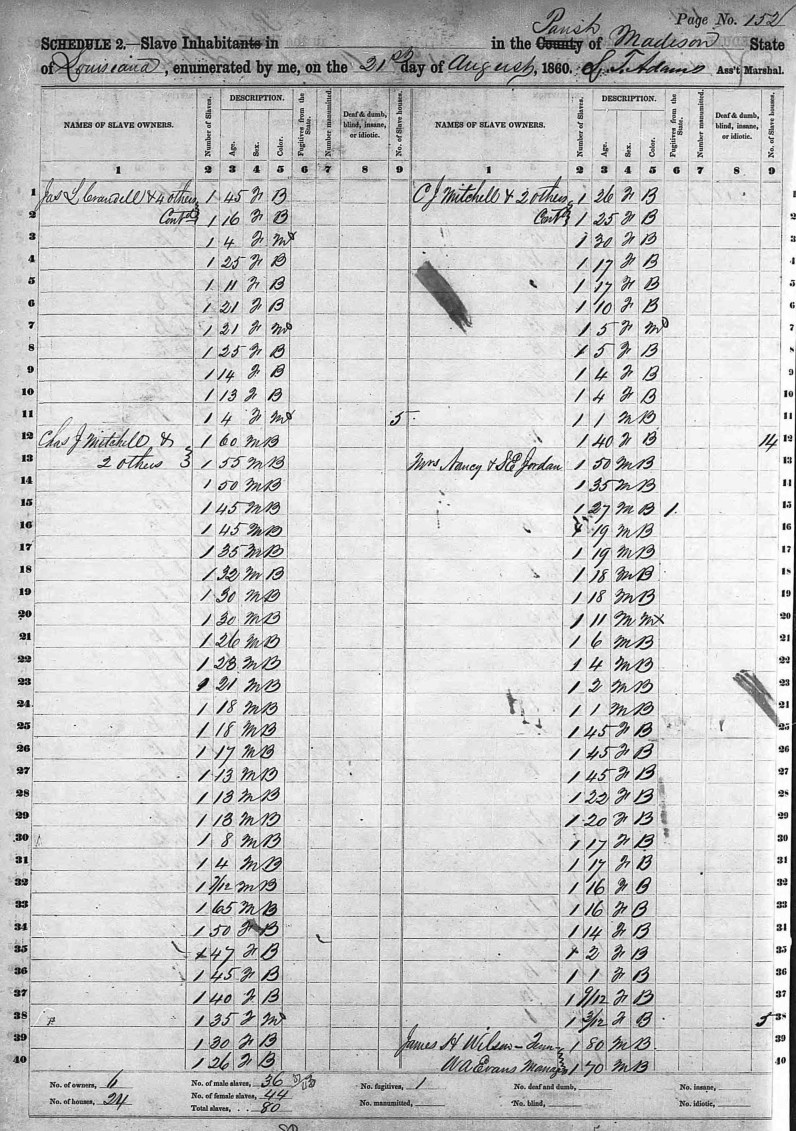 Page No. 152
Parish
SCHEDULE 2.—Slave Inhabitants in in the County of Madison State
of Louisiana, enumerated by me, on the 21st day of August, 1860. Ass't Marshal.
NAMES OF SLAVE OWNERS. Number of Slaves. DESCRIPTION. Age. Sex. Color. Fugitives from the State. Number manumitted. Deaf & dumb, blind, insane, or idiotic. No. of Slave houses. NAMES OF SLAVE OWNERS. Number of Slaves. DESCRIPTION. Age. Sex. Color. Fugitives from the State. Number manumitted. Deaf & dumb, blind, insane, or idiotic. No. of Slave houses.
1 2 3 4 5 6 7 8 9 1 2 3 4 5 6 7 8 9
1 Jas L Crandell & 4 others 1 45 F B C J Mitchell & 2 others 1 26 F B 1
2 Contd 1 16 F B Contd 1 25 F B 2
3 1 4 F 1 30 F B 3
4 1 25 F B 1 17 F B 4
5 1 11 F B 1 17 F B 5
6 1 21 F B 1 10 F B 6
7 1 21 F 1 5 F 7
8 1 25 F B 5 F B 8
9 1 14 F B 1 4 F B 9
10 1 13 F B 1 4 F B 10
11 1 4 F 5 1 1 M B 11
12 Chas J Mitchell & 1 60 M B 1 40 F B 14 12
13 2 others 1 55 M B Mrs Nancy & S E Jordan 1 50 M B 13
14 1 50 M B 1 35 M B 14
15 1 45 M B 1 27 M B 1 15
16 1 45 M B 19 M B 16
17 1 35 M B 1 19 M B 17
18 1 32 M B 1 18 M B 18
19 1 30 M B 1 18 M B 19
20 1 30 M B 1 11 M 20
21 1 26 M B 1 6 M B 21
22 1 23 M B 1 4 M B 22
23 1 21 M B 1 2 M B 23
24 1 18 M B 1 1 M B 24
25 1 18 M B 1 45 F B 25
26 1 17 M B 1 45 F B 26
27 1 13 M B 1 45 F B 27
28 1 13 M B 1 22 F B 28
29 1 13 M B 1 20 F B 29
30 1 8 M B 1 17 F B 30
31 1 4 M B 1 17 F B 31
32 1 M B 1 16 F B 32
33 1 65 M B 1 16 F B 33
34 1 50 F B 1 14 F B 34
35 47 F B 2 F B 35
36 1 45 F B 1 1 F B 36
37 1 40 F B 1 9/12 F B 37
38 1 35 F 1 3/12 F B 5 38
39 1 30 F B James H Wilson 1 80 M B 39
40 1 26 F B W A Evans Manager 1 70 M B 40
No. of owners, 6 No. of male slaves, 36 No. fugitives, 1 No. deaf and dumb, No. insane,
No. of houses, 24 No. of female slaves, 44 No. manumitted, No. blind, No. idiotic,
Total slaves, 80